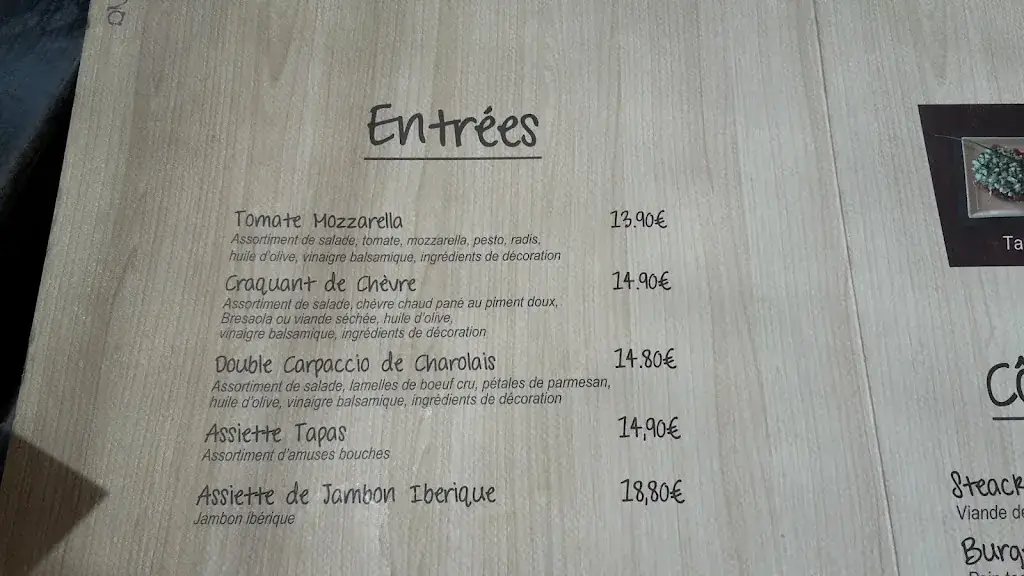 Entrées
Tomate Mozzarella 13.90€
Assortiment de salade, tomate, mozzarella, pesto, radis,
huile d'olive, vinaigre balsamique, ingrédients de décoration
Craquant de Chèvre 14.90€
Assortiment de salade, chèvre chaud pané au piment doux,
Bresaola ou viande séchée, huile d'olive,
vinaigre balsamique, ingrédients de décoration
Double Carpaccio de Charolais 14.80€
Assortiment de salade, lamelles de boeuf cru, pétales de parmesan,
huile d'olive, vinaigre balsamique, ingrédients de décoration
Assiette Tapas 14,90€
Assortiment d'amuses bouches
Assiette de Jambon Iberique 18,80€
Jambon ibérique
Ta
Cô
Steack
Viande de
Burg